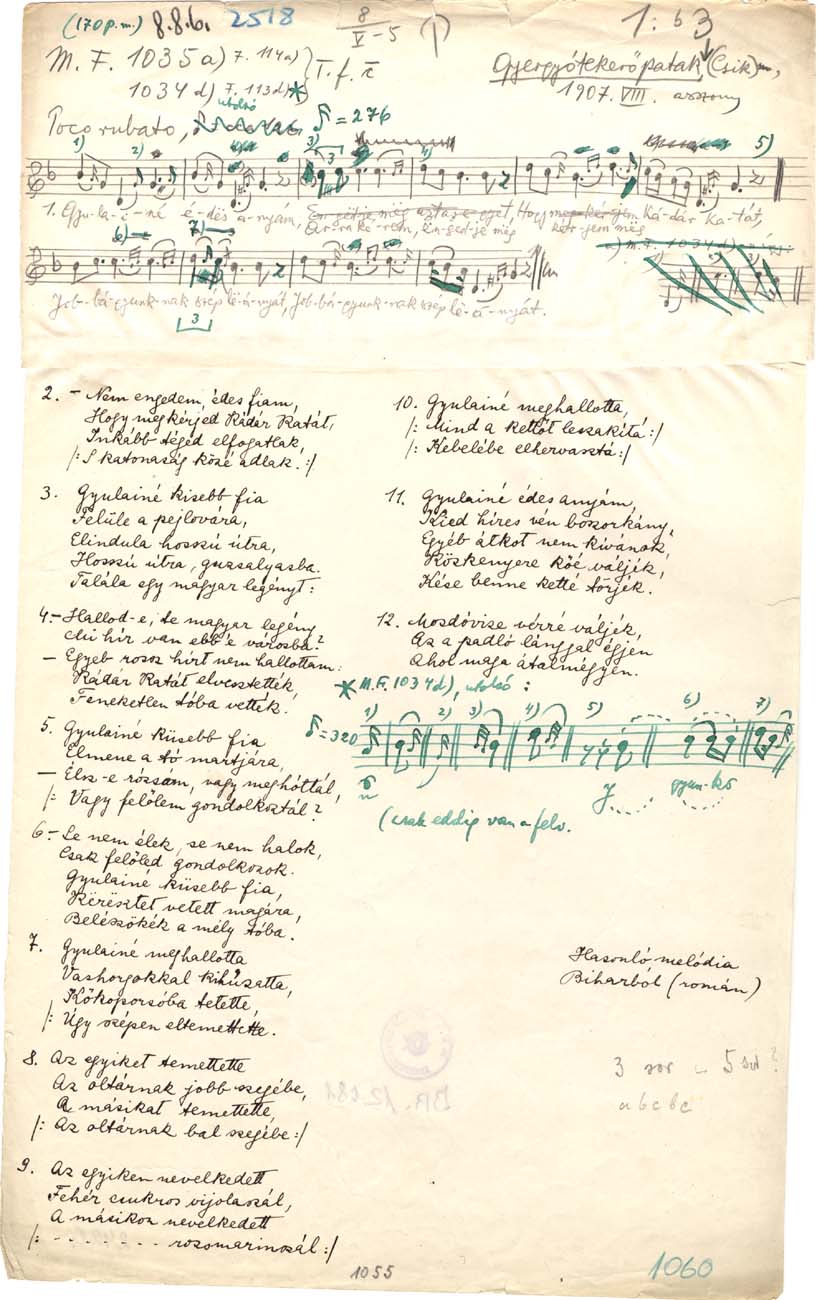 (170 p.m.) 8.8.6. 2518
8
V-5
(1)
1: b3
M. F. 1035 a) F. 114a)
1034 d) F. 113d) *
utolsó
T. f. r
Gyergyótekerőpatak, (Csik) m,
1907. VIII. asszony
Poco rubato, ♪ = 276
1) 2) 3) 4) 5)
1. Gyu-la-i-né é-dës a-nyám, Hogy Ká-dár Ka-tát,
Ar-ra ké-rem, en-ged-je még kér-jem még
c) M.F. 1034 d)
6) 7)
Job-bá-gyunk-nak szép lë-á-nyát, Job-bá-gyunk-nak szép lë-á-nyát.
3
2. - Nem engedem, édes fiam,
Hogy megkérjed Kádár Katát,
Inkább tégëd elfogatlak,
/: S katonaság közé adlak. :/
3. Gyulainé kisebb fia
Felüle a pejlovára,
Elindula hosszú útra,
Hosszú útra, guzsalyasba.
Talála egy magyar legényt:
4. - Hallod-e, te magyar legény
Mi hír van ebb'e városba?
- Egyéb rossz hírt nem hallottam:
Kádár Katát elvesztették,
Feneketlen tóba vették.
5. Gyulainé küsebb fia
Elmene a tó martjára,
- Élsz-e rózsám, vagy meghóttál,
/: Vagy felőlem gondolkoztál?
6. - Se nem élek, se nem halok,
Csak felőled gondolkozok.
Gyulainé küsebb fia,
Kërësztet vetett magára,
Belészökék a mély tóba.
7. Gyulainé meghallotta
Vashorgokkal kihúzatta,
Kőkoporsóba tetette,
/: Úgy szépen eltemettette.
8. Az egyiket temettette
Az oltárnak jobb szegébe,
A másikat temettette,
/: Az oltárnak bal szegébe :/
9. Az egyiken nevelkedett
Fehér cukros vijolaszál,
A másikon nevelkedett
/: - - - - - - - rozsmarinszál :/
10. Gyulainé meghallotta,
/: Mind a kettőt leszakítá :/
/: Kebelébe elhervasztá :/
11. Gyulainé édes anyám,
Kied híres vén boszorkány,
Egyéb átkot nem kívánok,
Közkenyere kőé váljék,
Kése benne ketté törjék.
12. Mosdóvize vérré váljék,
Az a padló lánggal égjen
Ahol maga átalmégyen.
* M.F. 1034 d), utolsó :
♪ = 320
1) 2) 3) 4) 5) 6) 7)
J gyun-kő
(csak eddig van a felv.
Hasonló melódia
Biharból (román)
3 sor
5 sor?
a b c b c
BR. 12081
1055
1060